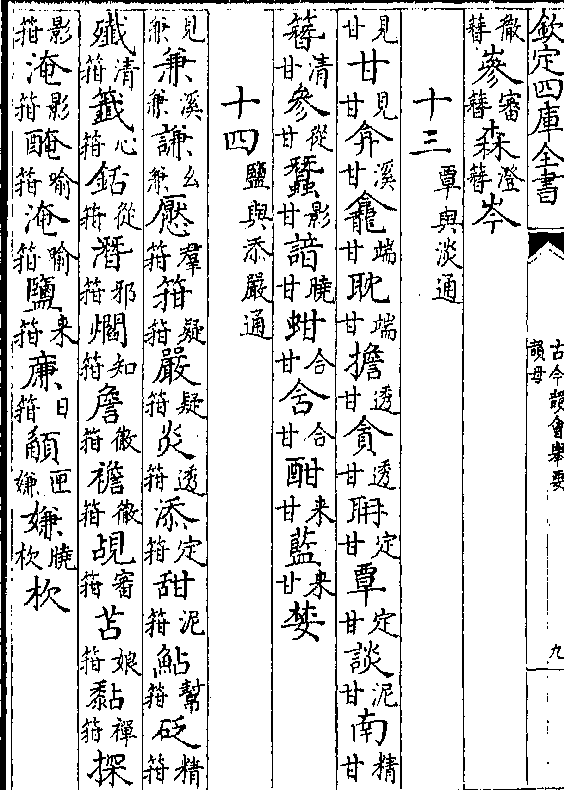 欽定四庫全書
古今韻會舉要
韻母
九
徹簪嵾審簪森澄簪岑
十三覃與淡通
見甘甘見甘弇溪甘龕端甘耽端甘擔透甘貪透甘聃定甘覃定甘談泥甘南精甘
簪清甘參從甘蠶影甘諳曉甘蚶合甘含合甘酣來甘藍來甘婪
十四鹽與添嚴通
見兼兼溪兼謙幺兼懕羣箝箝疑箝嚴疑箝炎透箝添定箝甜泥箝鮎幫箝砭精箝
殲清箝籤心箝銛從箝潛邪箝爓知箝詹徹箝襜徹箝覘審箝苫娘箝黏禪箝探
影箝淹影箝醃喻箝淹喻箝鹽來箝廉日箝髥匣嫌嫌曉杴杴